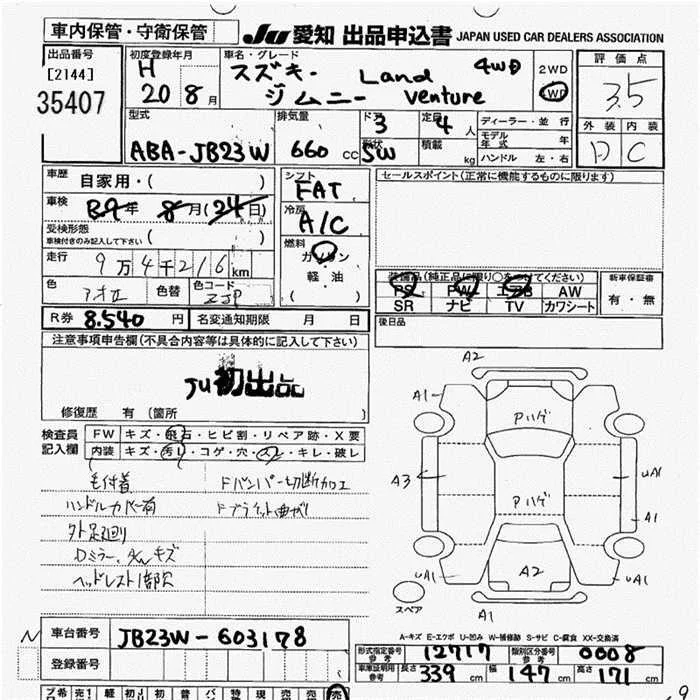 車内保管・守衛保管
JU 愛知 出品申込書 JAPAN USED CAR DEALERS ASSOCIATION
出品番号
[2144]
35407
初度登録年月
H
20年 8月
車名・グレード
スズキ・ Land 4WD
ジムニー Venture
2WD
4WD
評価点
3.5
外装 内装
D C
型式
ABA-JB23W
排気量
660 cc
ドア
3
形状
SW
定員
4人
積載
kg
ディーラー・並行
モデル年式 年
ハンドル 左・右
車歴
自家用・( )
車検
年 8月(24日)
受検形態
車検付きのみ記入して下さい ( )
走行
9万4千216km
色
アオII
色替
色コード
ZJP
シフト
FAT
冷房
A/C
燃料
ガソリン
軽・油
( )
セールスポイント(正常に機能するものに限ります)
装備品(純正品に限り○をつけてください)
PS PW エアB AW
SR ナビ TV カワシート
新車保証書
有・無
後日品
R券 8.540円
名変通知期限 月 日
注意事項申告欄(不具合内容等は具体的に記入して下さい)
JU初出品
修復歴 有(箇所 )
検査員記入欄
FW キズ・飛石・ヒビ割・リペア跡・X要
内装 キズ・汚レ・コゲ・穴・スレ・キレ・破レ
毛付着
ハンドルカバー有
タト足廻り
Dミラー、A/Wキズ
ヘッドレスト1部欠
Fバンパー切断加工
Fブラケット曲ガリ
A2
A1
Pハゲ
A3
uA1
Pハゲ
A1
uA1
A2
uA1
スペア
A1
A-キズ E-エクボ U-凹み W-補修跡 S-サビ C-腐食 XX-交換済
N
車台番号
JB23W-603178
登録番号
形式指定番号 参考
12717
類別区分番号 参考
0008
車庫証明用 参考
長さ 339cm
幅 147cm
高さ 171cm